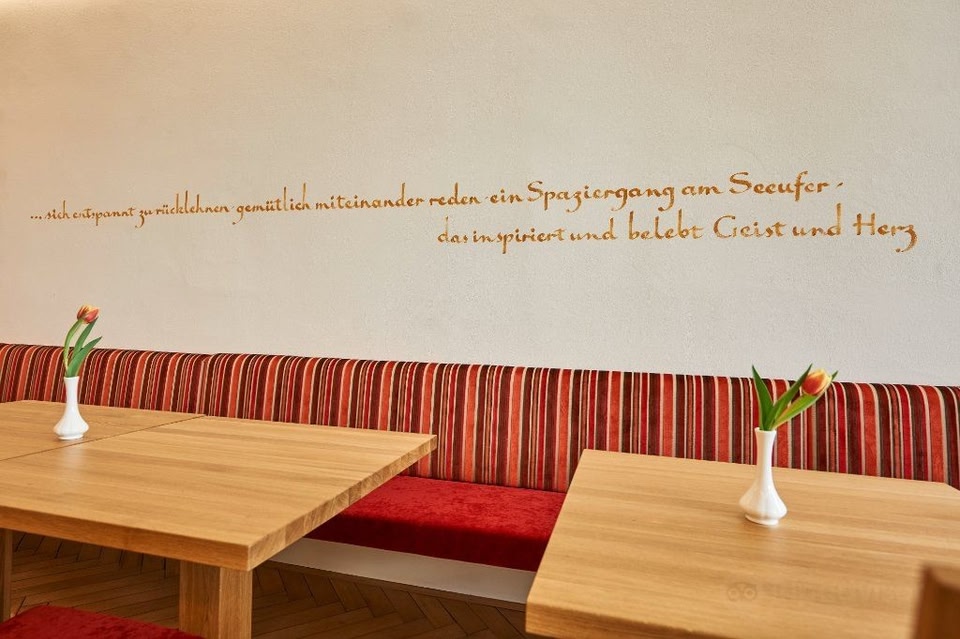 ... sich entspannt zurücklehnen · gemütlich miteinander reden · ein Spaziergang am Seeufer ·
das inspiriert und belebt Geist und Herz